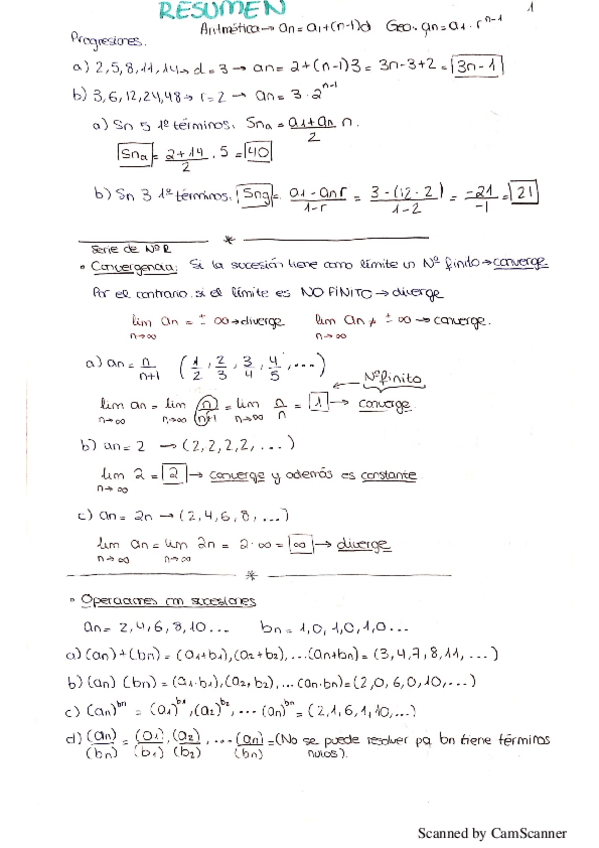 RESUMEN
1
Aritmética → an = a1+(n-1)d Geo. an = a1 · r^n-1
Progresiones.
a) 2, 5, 8, 11, 14 → d = 3 → an = 2+(n-1)3 = 3n-3+2 = 3n-1
b) 3, 6, 12, 24, 48 → r = 2 → an = 3 · 2^n-1
a) Sn 5 1º términos. Sna = a1+an/2 n.
Sna = 2+14/2 · 5 = 40
b) Sn 3 1º términos. Sng = a1 - anr/1-r = 3-(12·2)/1-2 = -21/-1 = 21
*
Serie de Nº R
• Convergencia: Si la sucesión tiene como límite un Nº finito → converge
Por el contrario, si el límite es NO FINITO → diverge
lim n→∞ an = ± ∞ → diverge lim n→∞ an ≠ ± ∞ → converge.
a) an = n/n+1 (1/2, 2/3, 3/4, 4/5, ...)
Nº finito
lim n→∞ an = lim n→∞ n/n+1 = lim n→∞ n/n = 1 → converge
b) an = 2 → (2, 2, 2, 2, ...)
lim n→∞ 2 = 2 → converge y además es constante
c) an = 2n → (2, 4, 6, 8, ...)
lim n→∞ an = lim n→∞ 2n = 2·∞ = ∞ → diverge
*
• Operaciones con sucesiones
an = 2, 4, 6, 8, 10 ... bn = 1, 0, 1, 0, 1, 0 ...
a) (an)+(bn) = (a1+b1), (a2+b2), ... (an+bn) = (3, 4, 7, 8, 11, ...)
b) (an) (bn) = (a1·b1), (a2, b2), ... (an·bn) = (2, 0, 6, 0, 10, ...)
c) (an)^bn = (a1)^b1, (a2)^b2, ... (an)^bn = (2, 1, 6, 1, 10, ...)
d) (an)/(bn) = (a1)/(b1), (a2)/(b2), ... (an)/(bn) = (No se puede resolver pq bn tiene términos
nulos).
Scanned by CamScanner